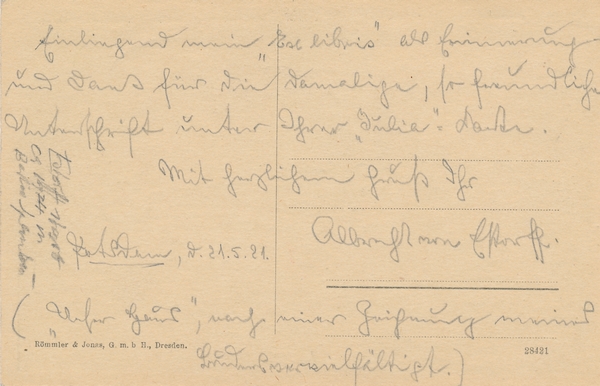 Einliegend mein „Ex libris" als Erinnerung
und Dank für die damalige, so freundliche
Unterschrift unter Ihrer „Julia"-Karte.
Mit herzlichem Gruß Ihr
Albrecht von Estorff.
Potsdam, d. 21.5.21.
(„Unser Haus", nach einer Zeichnung meines
Bruders vervielfältigt.)
Römmler & Jonas, G. m. b H., Dresden.
28421